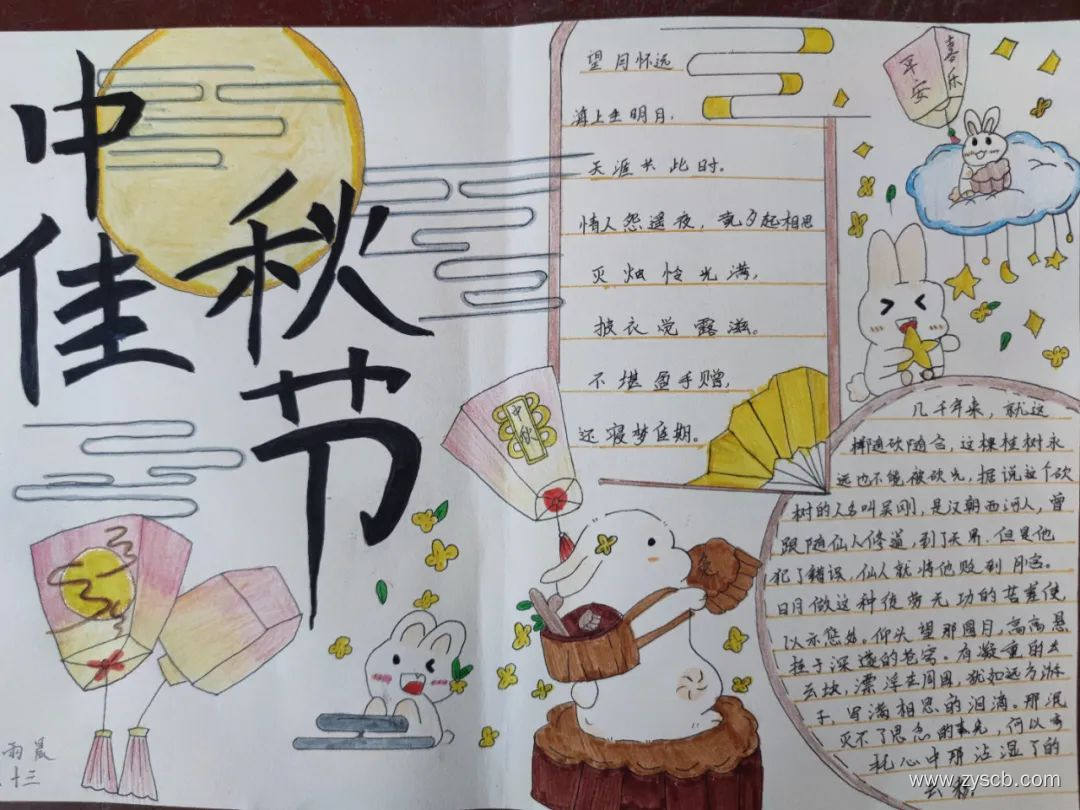 中秋佳节
望月怀远
海上生明月.
天涯共此时。
情人怨遥夜,竟夕起相思
灭烛怜光满,
披衣觉露滋。
不堪盈手赠,
还寝梦佳期。
平安
喜乐
中秋
几千年来,就这
样随砍随合,这棵桂树永
远也不能被砍光,据说这个砍
树的人名叫吴刚,是汉朝西河人,曾
跟随仙人修道,到了天界.但是他
犯了错误,仙人就将他贬到月宫。
日月做这种徒劳无功的苦差使
以示惩处。仰头望那圆月,高高悬
挂于深邃的苍穹。有数重
云块,漂浮在周围,犹如远方
子,写满相思的泪滴。那泯
灭不了思念的何以
心中那湿了的
雨晨
十三
www.zyscb.com